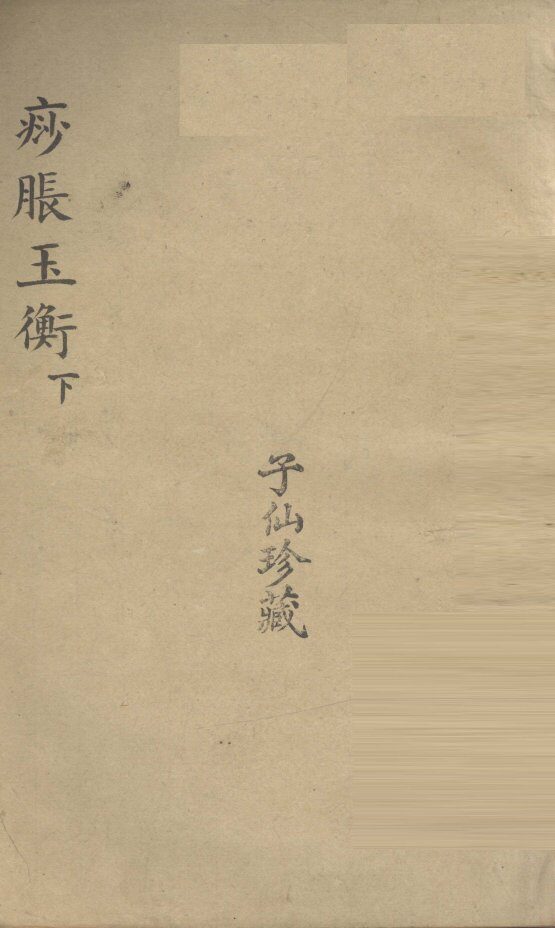 痧脹玉衡下
子仙珍藏